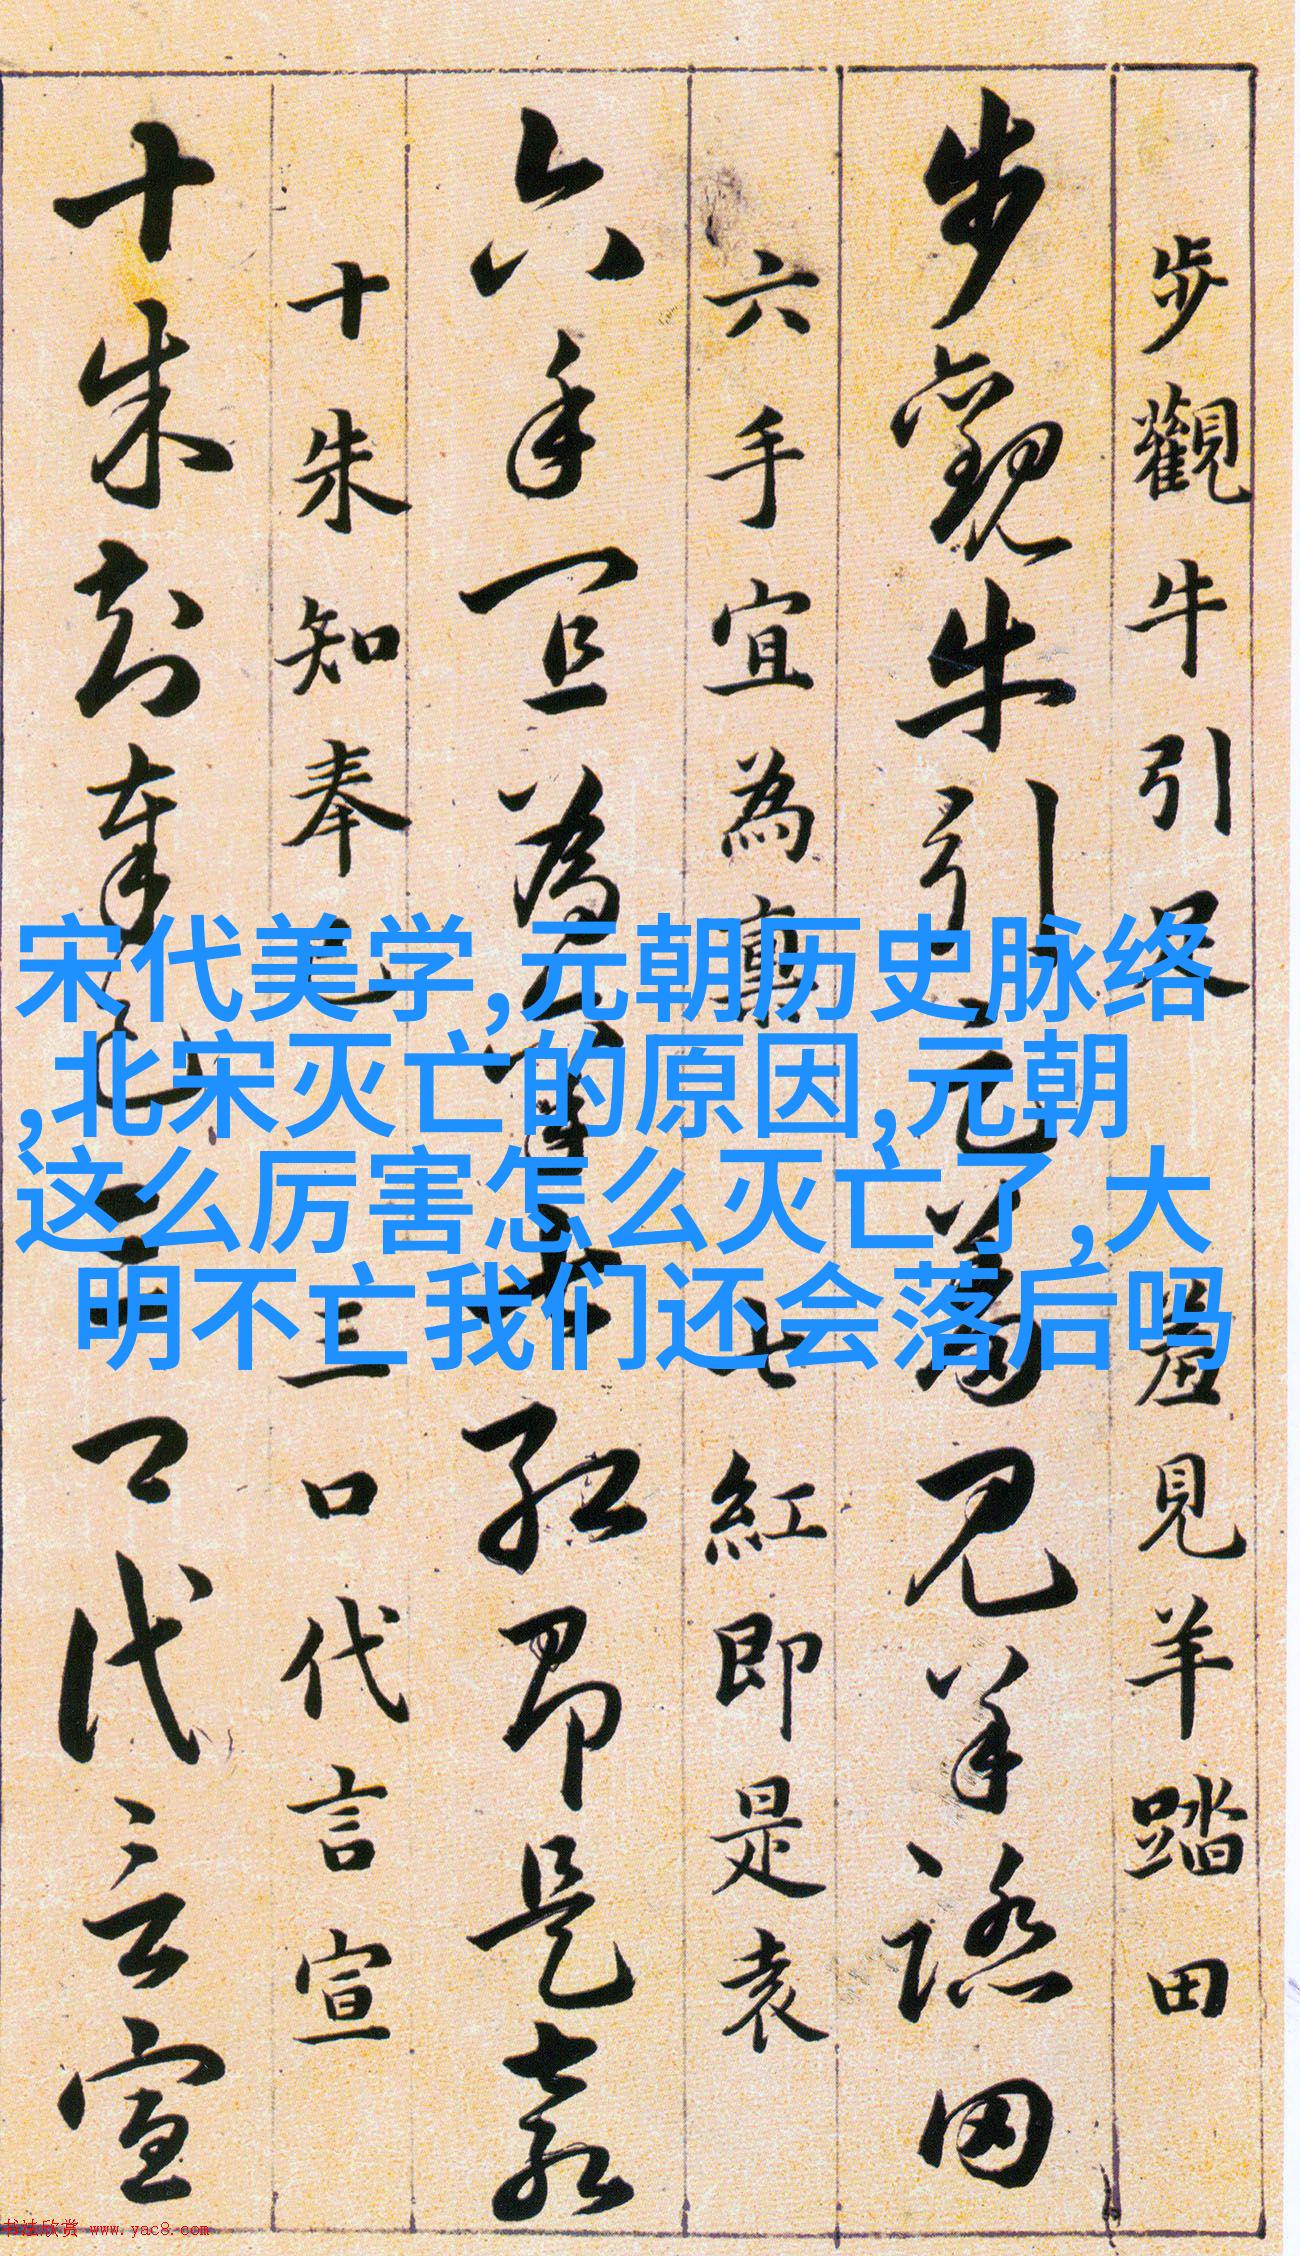 步觀牛引足羞見羊踏田
步觀牛引足羞見羊踏田
六手宜為稟七紅即是袁
六手宜為稟七紅即是袁
十朱知奉已三口代言宣
十朱知奉已三口代言宣
宋代美学,元朝历史脉络
,北宋灭亡的原因,元朝
这么厉害怎么灭亡了,大
明不亡我们还会落后吗
书法欣赏 www.yac8.com